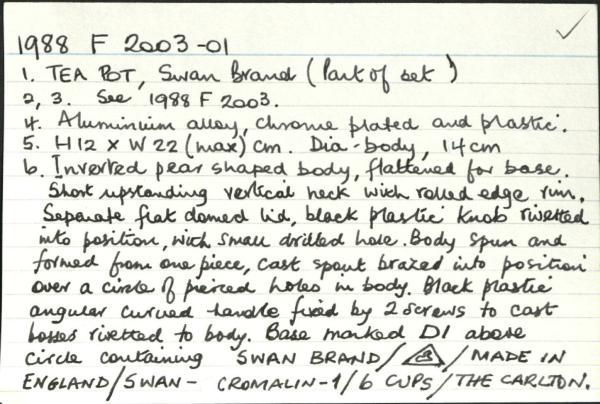 1988 F 2003-01
1. TEA POT, Swan Brand (Part of set )
2, 3. See 1988 F 2003.
4. Aluminium alloy, chrome plated and plastic.
5. H 12 x W 22 (max) cm. Dia-body, 14cm
6. Inverted pear shaped body, flattened for base.
Short upstanding vertical neck with rolled edge rim.
Separate flat domed lid, black plastic knob rivetted
into position, with small drilled hole. Body spun and
formed from one piece, cast spout brazed into position
over a circle of pierced holes in body. Black plastic
angular curved handle fixed by 2 screws to cast
bosses rivetted to body. Base marked D1 above
circle containing SWAN BRAND/ /MADE IN
ENGLAND/SWAN- CROMALIN-1/6 CUPS/THE CARLTON.